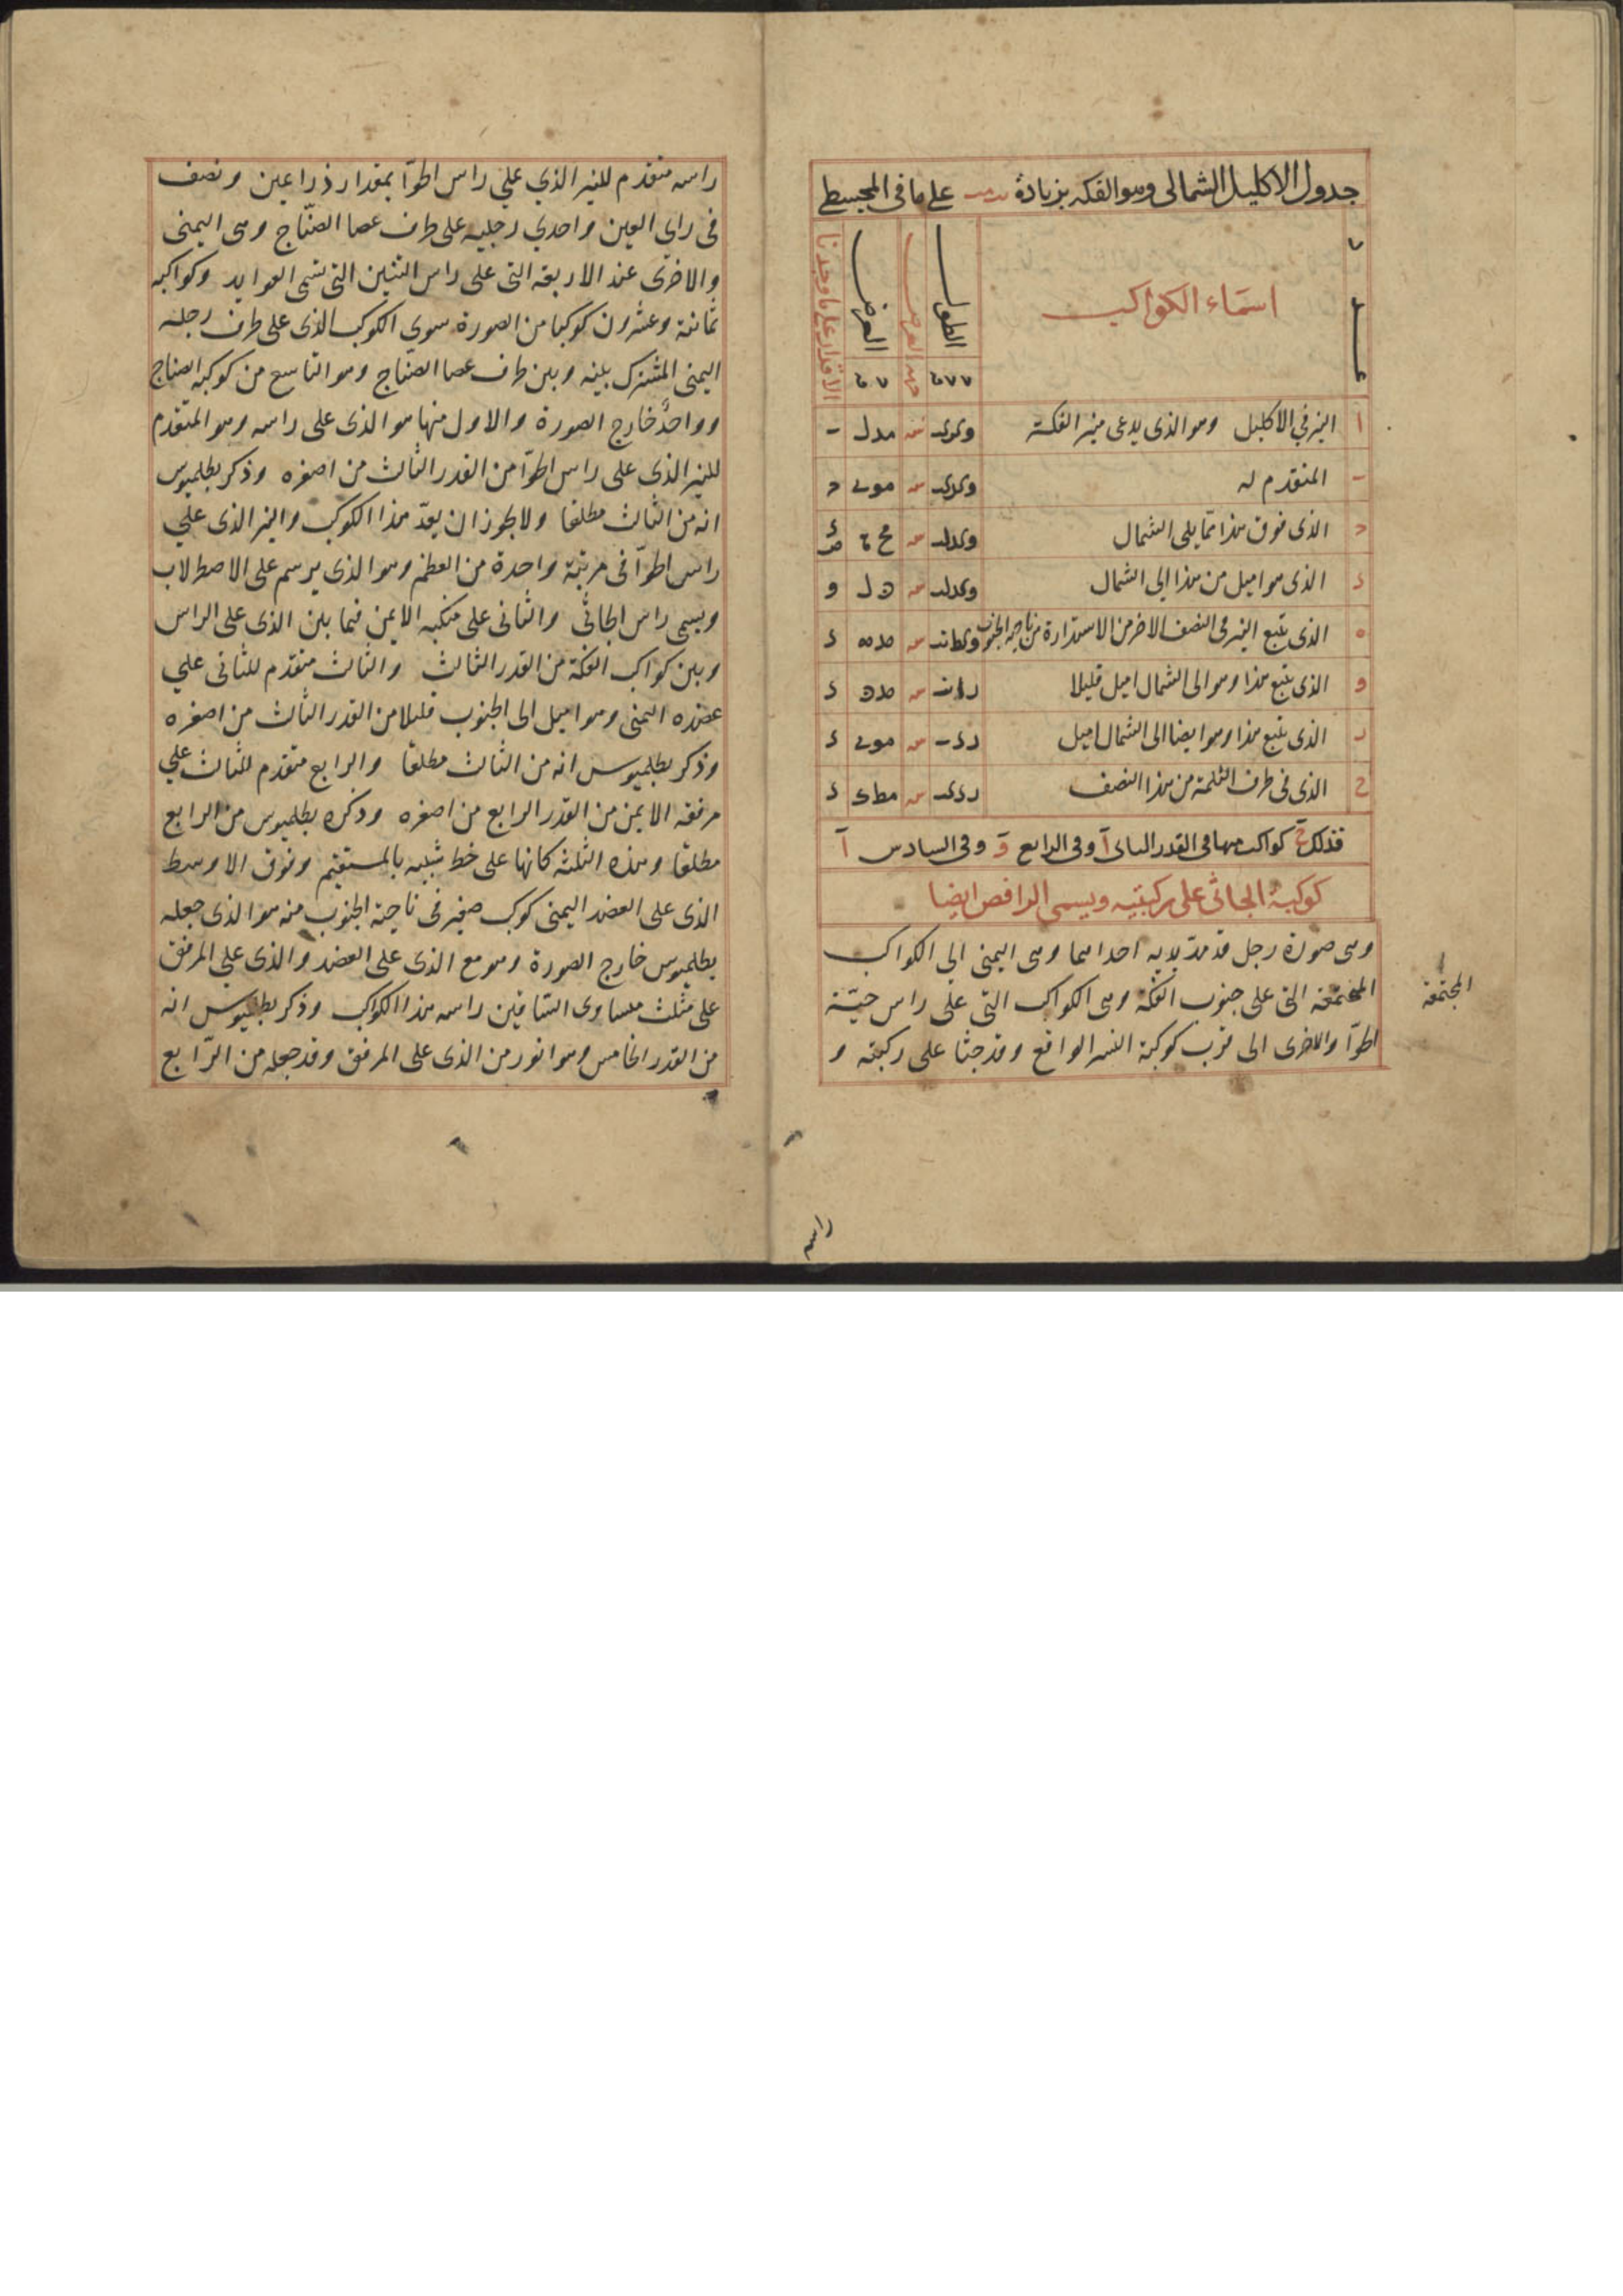 جدول الاكليل الشمالى وهو الفكه بزيادة يب مب على ما فى المجسطى
عدد
اسماء الكواكب
الطول
جهة العرض
العرض
الاقدار على ما وجدنا
ا النير في الاكليل وهو الذى يدعى منير الفكة
ب المتقدم له
ج الذى فوق هذا مما يلى الشمال
د الذى هو اميل من هذا الى الشمال
ه الذى يتبع النير فى النصف الاخر من الاستدارة من ناحية الجنوب
و الذى يتبع هذا وهو الى الشمال اميل قليلا
ز الذى يتبع هذا وهو ايضا الى الشمال اميل
ح الذى فى طرف الثلمة من هذا النصف
فذلك ح كواكب منها فى القدر الثانى آ وفى الرابع وَ وفى السادس آ
كوكبة الجاثى على ركبتيه ويسمى الراقص ايضا
وهى صورة رجل قد مدّ يديه احداهما وهى اليمنى الى الكواكب
المجتمعة التى على جنوب الفكة وهى الكواكب التى على راس حيّة
المجتمعة
الحوّآ والاخرى الى قرب كوكبة النسر الواقع وقد جثا على ركبته و
راسه
راسه متقدم للنير الذي على راس الحوّآ بمقدار ذراعين ونصف
فى راى العين واحدي رجليه على طرف عصا الصنّاج وهى اليمنى
والاخرى عند الاربعة التى على راس التنين التى تسمى العوايد وكواكبه
ثمانية وعشرون كوكبا من الصورة سوى الكوكب الذى على طرف رجله
اليمنى المشترك بينه وبين طرف عصا الصنّاج وهو التاسع من كوكبة الصناج
وواحدٌ خارج الصورة والاول منها هو الذى على راسه وهو المتقدم
للنير الذى على راس الحوّا من القدر الثالث من اصغره وذكر بطلميوس
انه من الثالث مطلقا ولا يجوز ان يعدّ هذا الكوكب والنير الذى على
راس الحوّآ فى مرتبة واحدة من العظم وهو الذى يرسم على الاصطرلاب
ويسمى راس الجاثى والثانى على منكبه الايمن فيما بين الذى على الراس
وبين كواكب الفكة من القدر الثالث والثالث متقدم للثانى على
عضده اليمنى وهو اميل الى الجنوب قليلا من القدر الثالث من اصغره
وذكر بطلميوس انه من الثالث مطلقا والرابع متقدم للثالث على
مرفقه الايمن من القدر الرابع من اصغره وذكره بطلميوس من الرابع
مطلقا وهذه الثلثة كانها على خط شبيه بالمستقيم وفوق الاوسط
الذى على العضد اليمنى كوكب صغير فى ناحية الجنوب منه هو الذى جعله
بطلميوس خارج الصورة وهو مع الذى على العضد والذى على المرفق
على مثلث متساوى الساقين راسه هذا الكوكب وذكر بطلميوس انه
من القدر الخامس وهو انور من الذى على المرفق وقد جعله من الرّابع